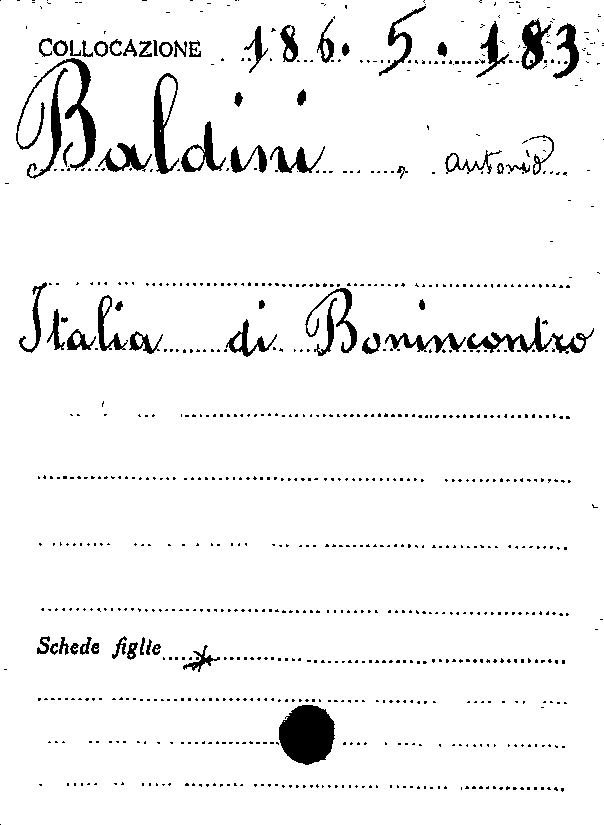 COLLOCAZIONE 186.5.183
Baldini, Antonio
Italia di Bonincontro
Schede figlie *